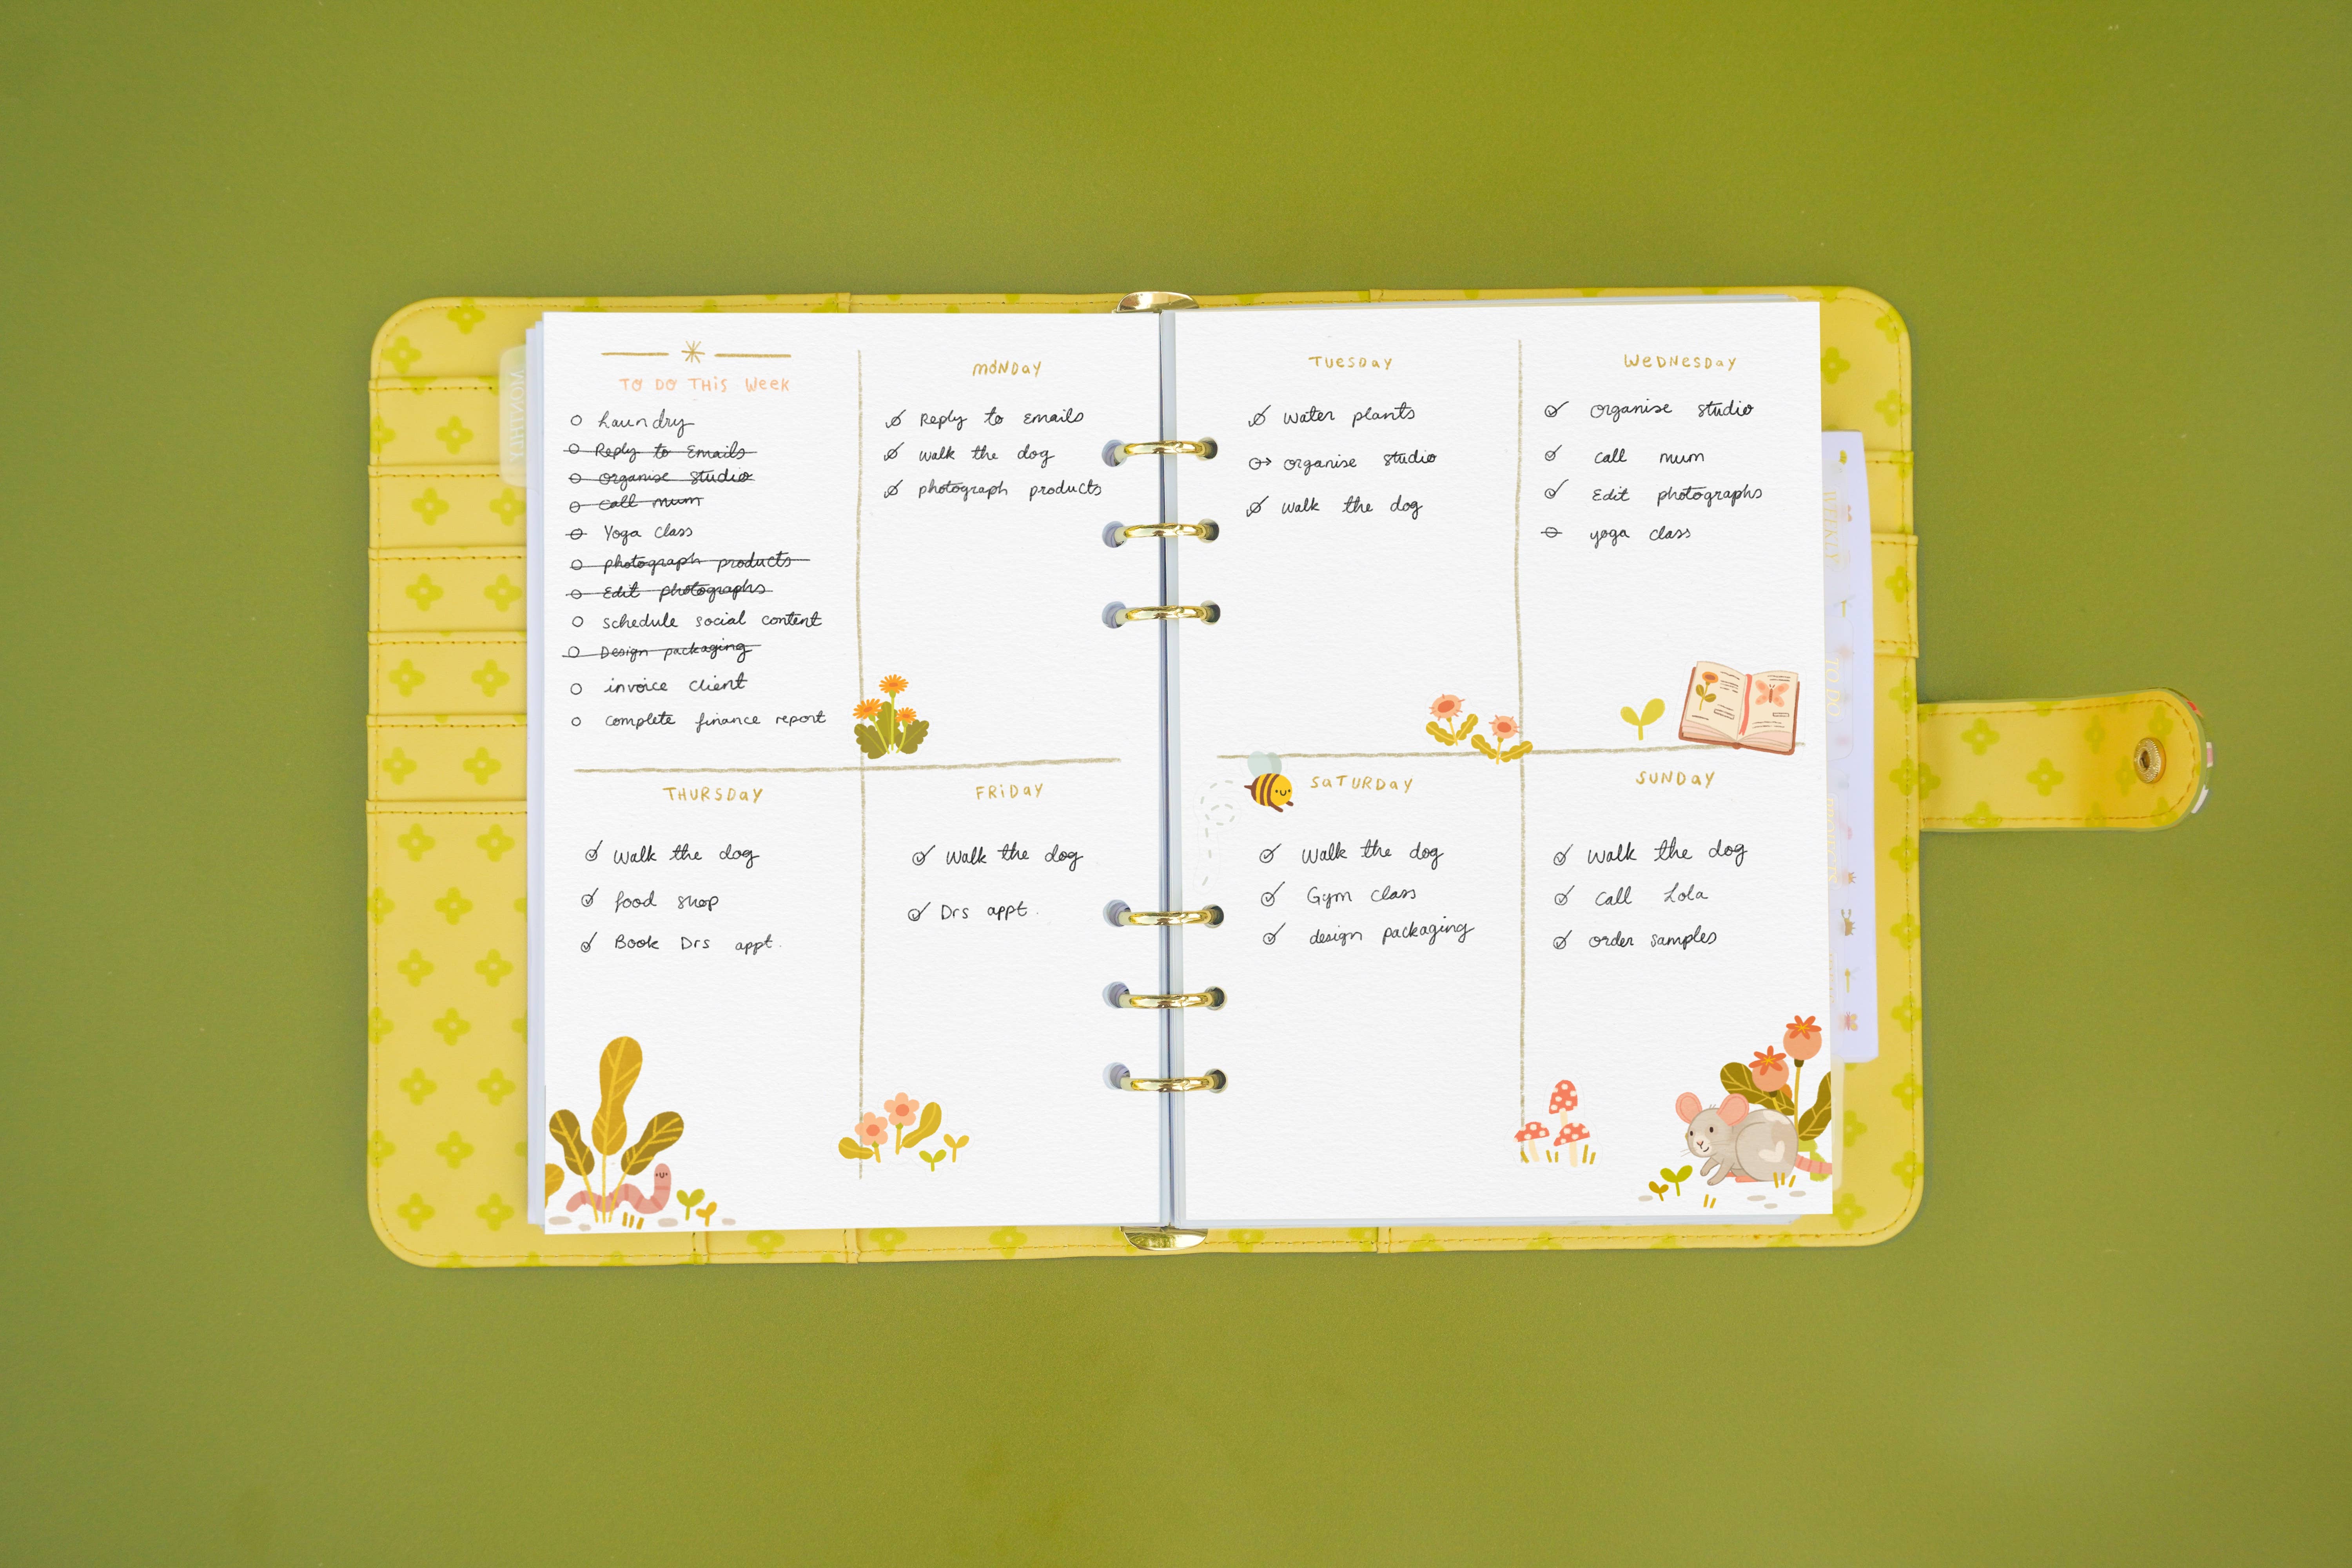 TO DO THIS WEEK
Laundry
Reply to Emails
organise studio
call mum
Yoga class
photograph products
Edit photographs
schedule social content
Design packaging
invoice client
complete finance report
MONDAY
Reply to Emails
walk the dog
photograph products
THURSDAY
Walk the dog
food shop
Book Drs appt.
FRIDAY
Walk the dog
Drs appt.
TUESDAY
Water plants
organise studio
Walk the dog
WEDNESDAY
organise studio
call mum
Edit photographs
yoga class
SATURDAY
Walk the dog
Gym class
design packaging
SUNDAY
Walk the dog
Call Lola
order samples
MONTHLY
WEEKLY
TO DO